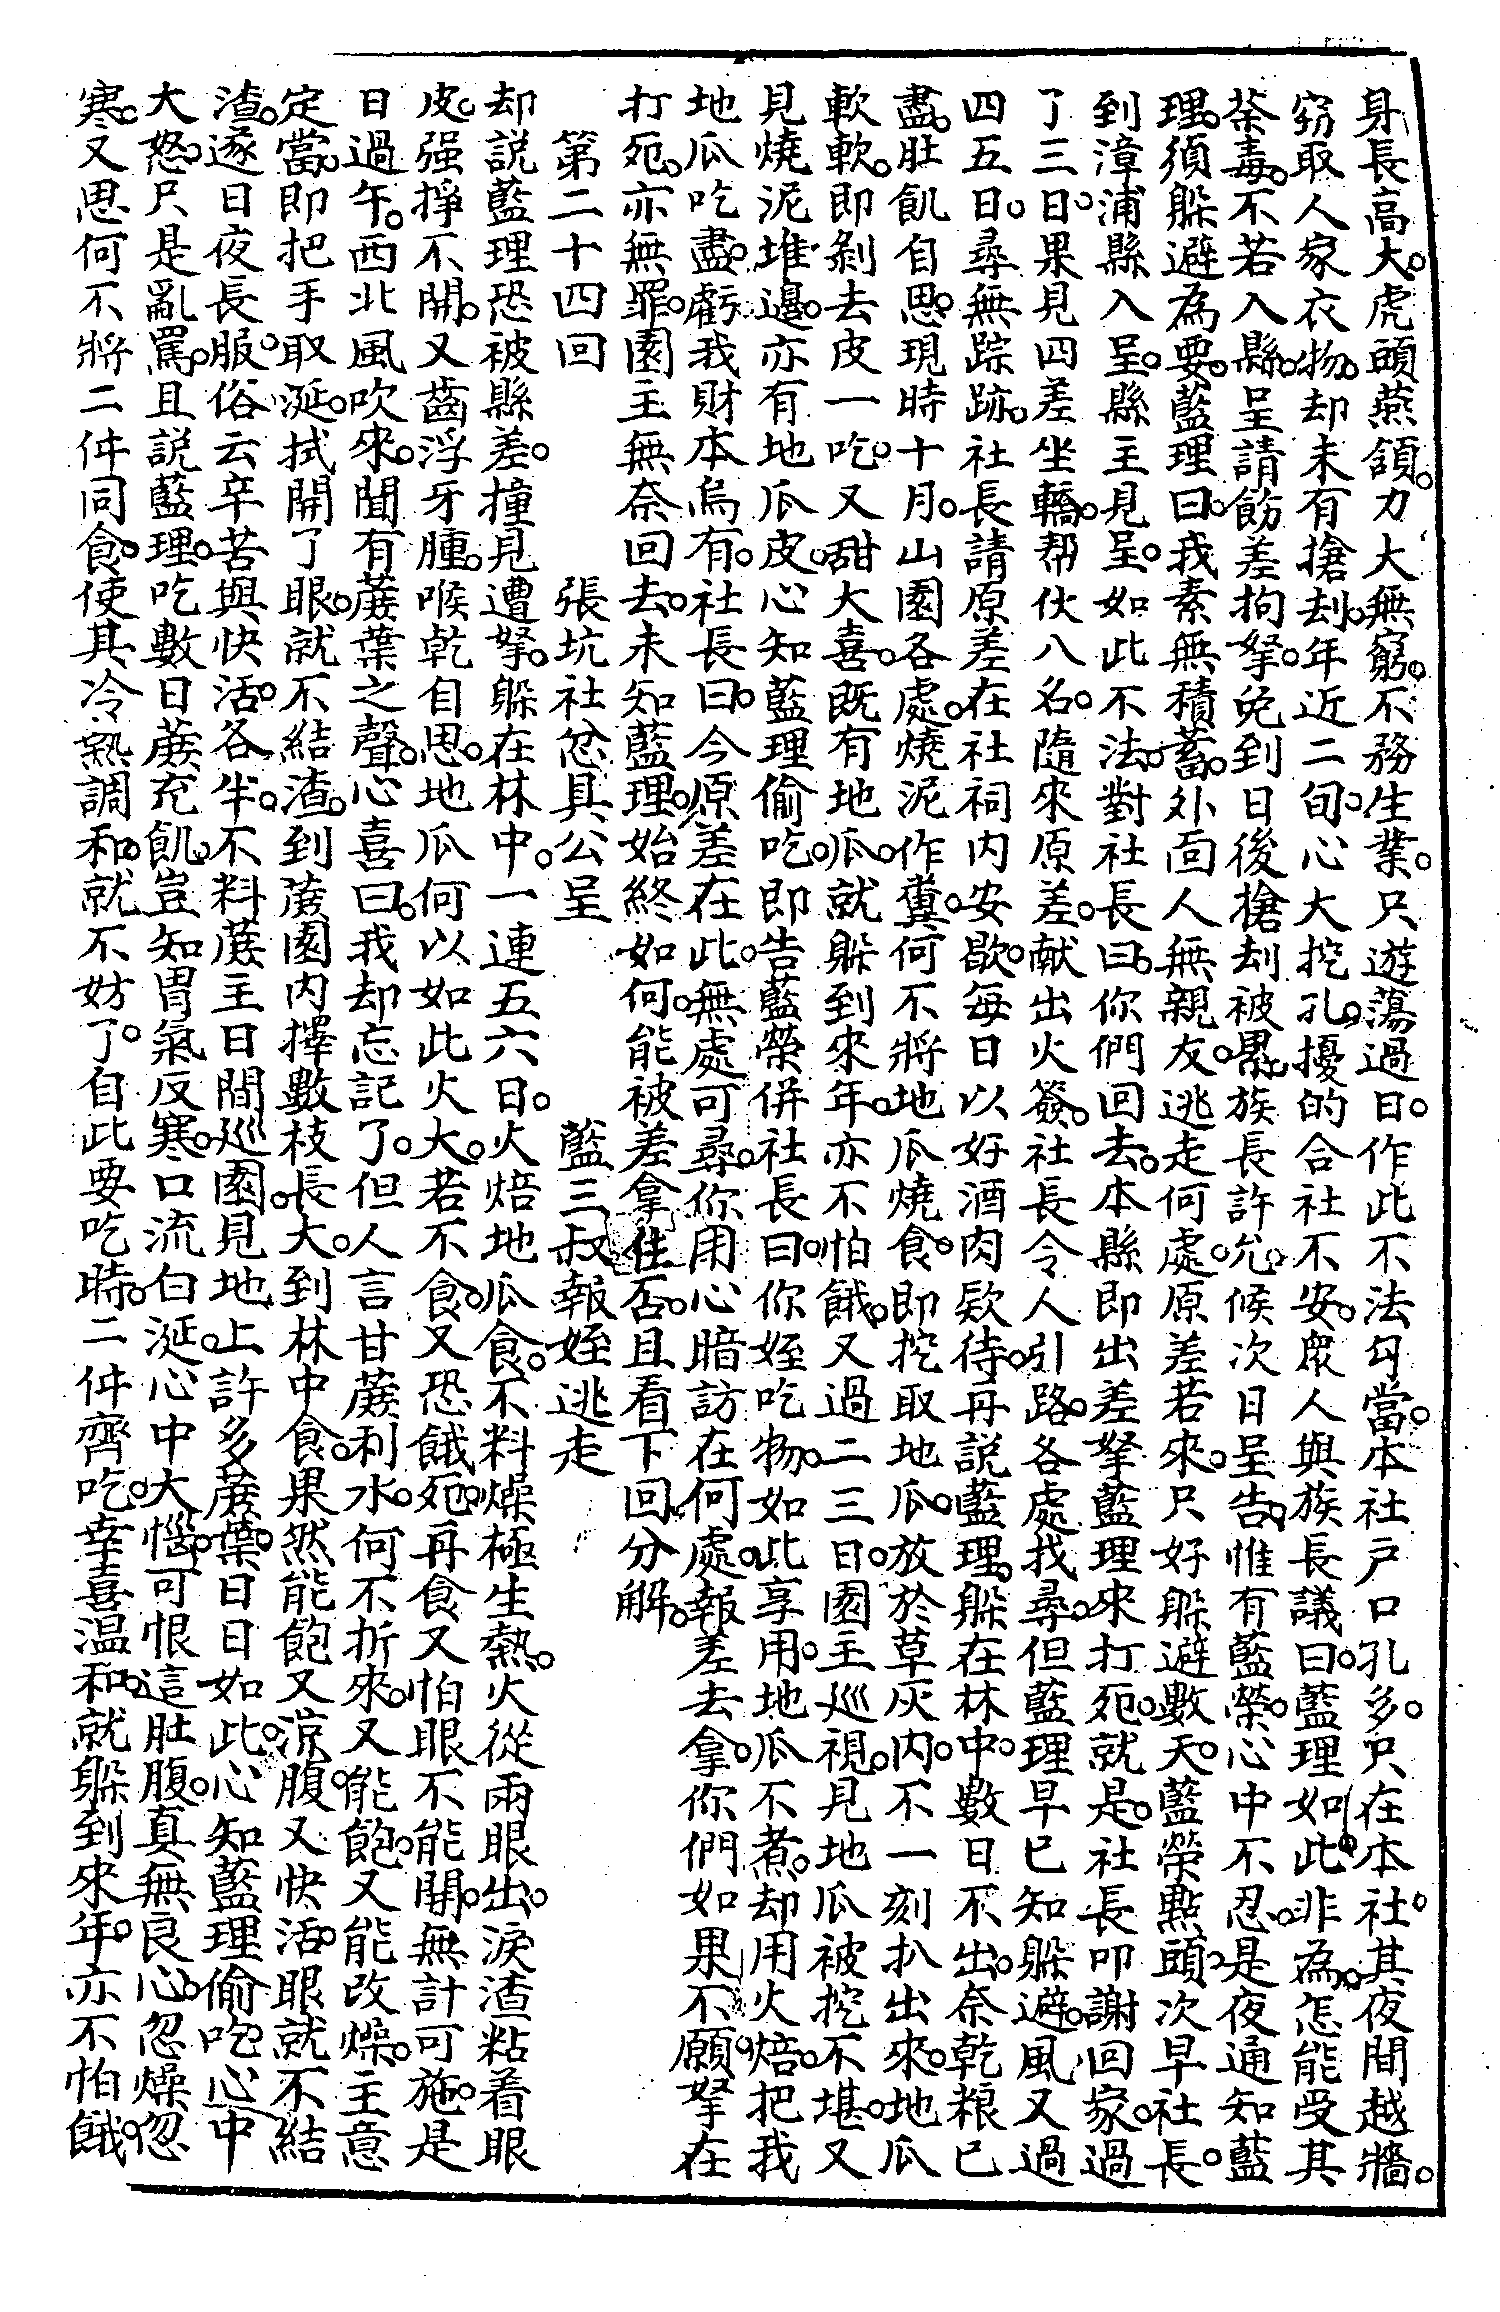 身長高大。虎頭燕頷。力大無窮。不務生業。只遊蕩過日。作此不法勾當。本社戶口孔多。只在本社。其夜間越牆。
窃取人家衣物。却未有搶刦。年近二旬。心大挖孔。擾的合社不安。衆人與族長議曰。藍理如此非為。怎能受其
荼毒。不若入縣。呈請飭差拘拏。免到日後搶刦被累。族長許允。候次日呈告。惟有藍榮。心中不忍。是夜通知藍
理。須躲避為要。藍理曰。我素無積蓄。外面人無親友。逃走何處。原差若來。只好躲避數天。藍榮點頭。次早社長。
到漳浦縣入呈。縣主見呈。如此不法。對社長曰。你們回去。本縣即出差拏藍理來打死。就是。社長叩謝回家。過
了三日。果見四差坐轎。帮伙八名。隨來原差。献出火簽。社長令人引路。各處找尋。但藍理早已知躲避。風又過
四五日。尋無踪跡。社長請原差在社祠內安歇。每日以好酒肉欵待。再説藍理。躲在林中。數日不出。奈乾粮已
盡。肚飢自思。現時十月。山園各處。燒泥作糞。何不將地瓜燒食。即挖取地瓜。放於草灰內。不一刻扒出來。地瓜
軟軟。即剝去皮一吃。又甜大喜。既有地瓜。就躲到來年。亦不怕餓。又過二三日。園主巡視。見地瓜被挖不堪。又
見燒泥堆邊。亦有地瓜皮。心知藍理偷吃。即告藍榮併社長曰。你姪吃物。如此享用。地瓜不煮。却用火焙。把我
地瓜吃盡。虧我財本烏有。社長曰。今原差在此。無處可尋。你用心暗訪在何處。報差去拿。你們如果不願拏在
打死。亦無罪。園主無奈回去。未知藍理。始終如何。能被差拿住否。且看下回分解。
第二十四回　張坑社忿具公呈　藍三叔報姪逃走
却説藍理恐被縣差。撞見遭拏。躲在林中。一連五六日。火焙地瓜食。不料燥極生熱。火從兩眼出。淚渣粘着眼
皮。强掙不開。又齒浮牙腫。喉乾自思。地瓜何以如此火大。若不食。又恐餓死。再食又怕眼不能開。無計可施。是
日過午。西北風吹來。聞有蔗葉之聲。心喜曰。我却忘記了。但人言甘蔗利水。何不折來。又能飽。又能改燥。主意
定當。即把手取涎。拭開了眼。就不結渣。到蔗園內擇數枝長大。到林中食。果然能飽又涼腹。又快活。眼就不結
渣。遂日夜長服。俗云辛苦與快活。各半。不料蔗主日間巡園。見地上許多蔗葉。日日如此。心知藍理偷吃。心中
大怒。只是亂罵。且説藍理。吃數日蔗充飢。豈知胃氣反寒。口流白涎。心中大惱。可恨這肚腹。真無良心。忽燥忽
寒。又思何不將二件同食。使其冷熱調和。就不妨了。自此要吃時。二件齊吃。幸喜温和。就躲到來年。亦不怕餓。